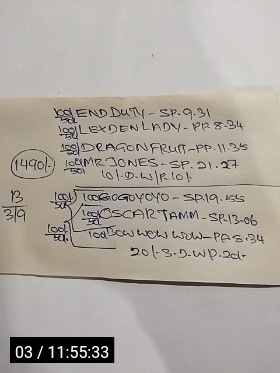 100/50 END DUTY - SP. 9.31
100/50 LEXDEN LADY - PP. 8.34
100/50 DRAGONFRUIT - PP. 11.35
1490/- 100/50 MR JONES - SP. 21.27
10/- D. W/R 10/-
B 3/9 100/50 100 GOGOYOYO - SP.19.
100/50 OSCAR TAMM - SP.13.06
100/50 100 WOW WOW - PA 5.34
20/- 3-D-WD.
03 / 11:55:33